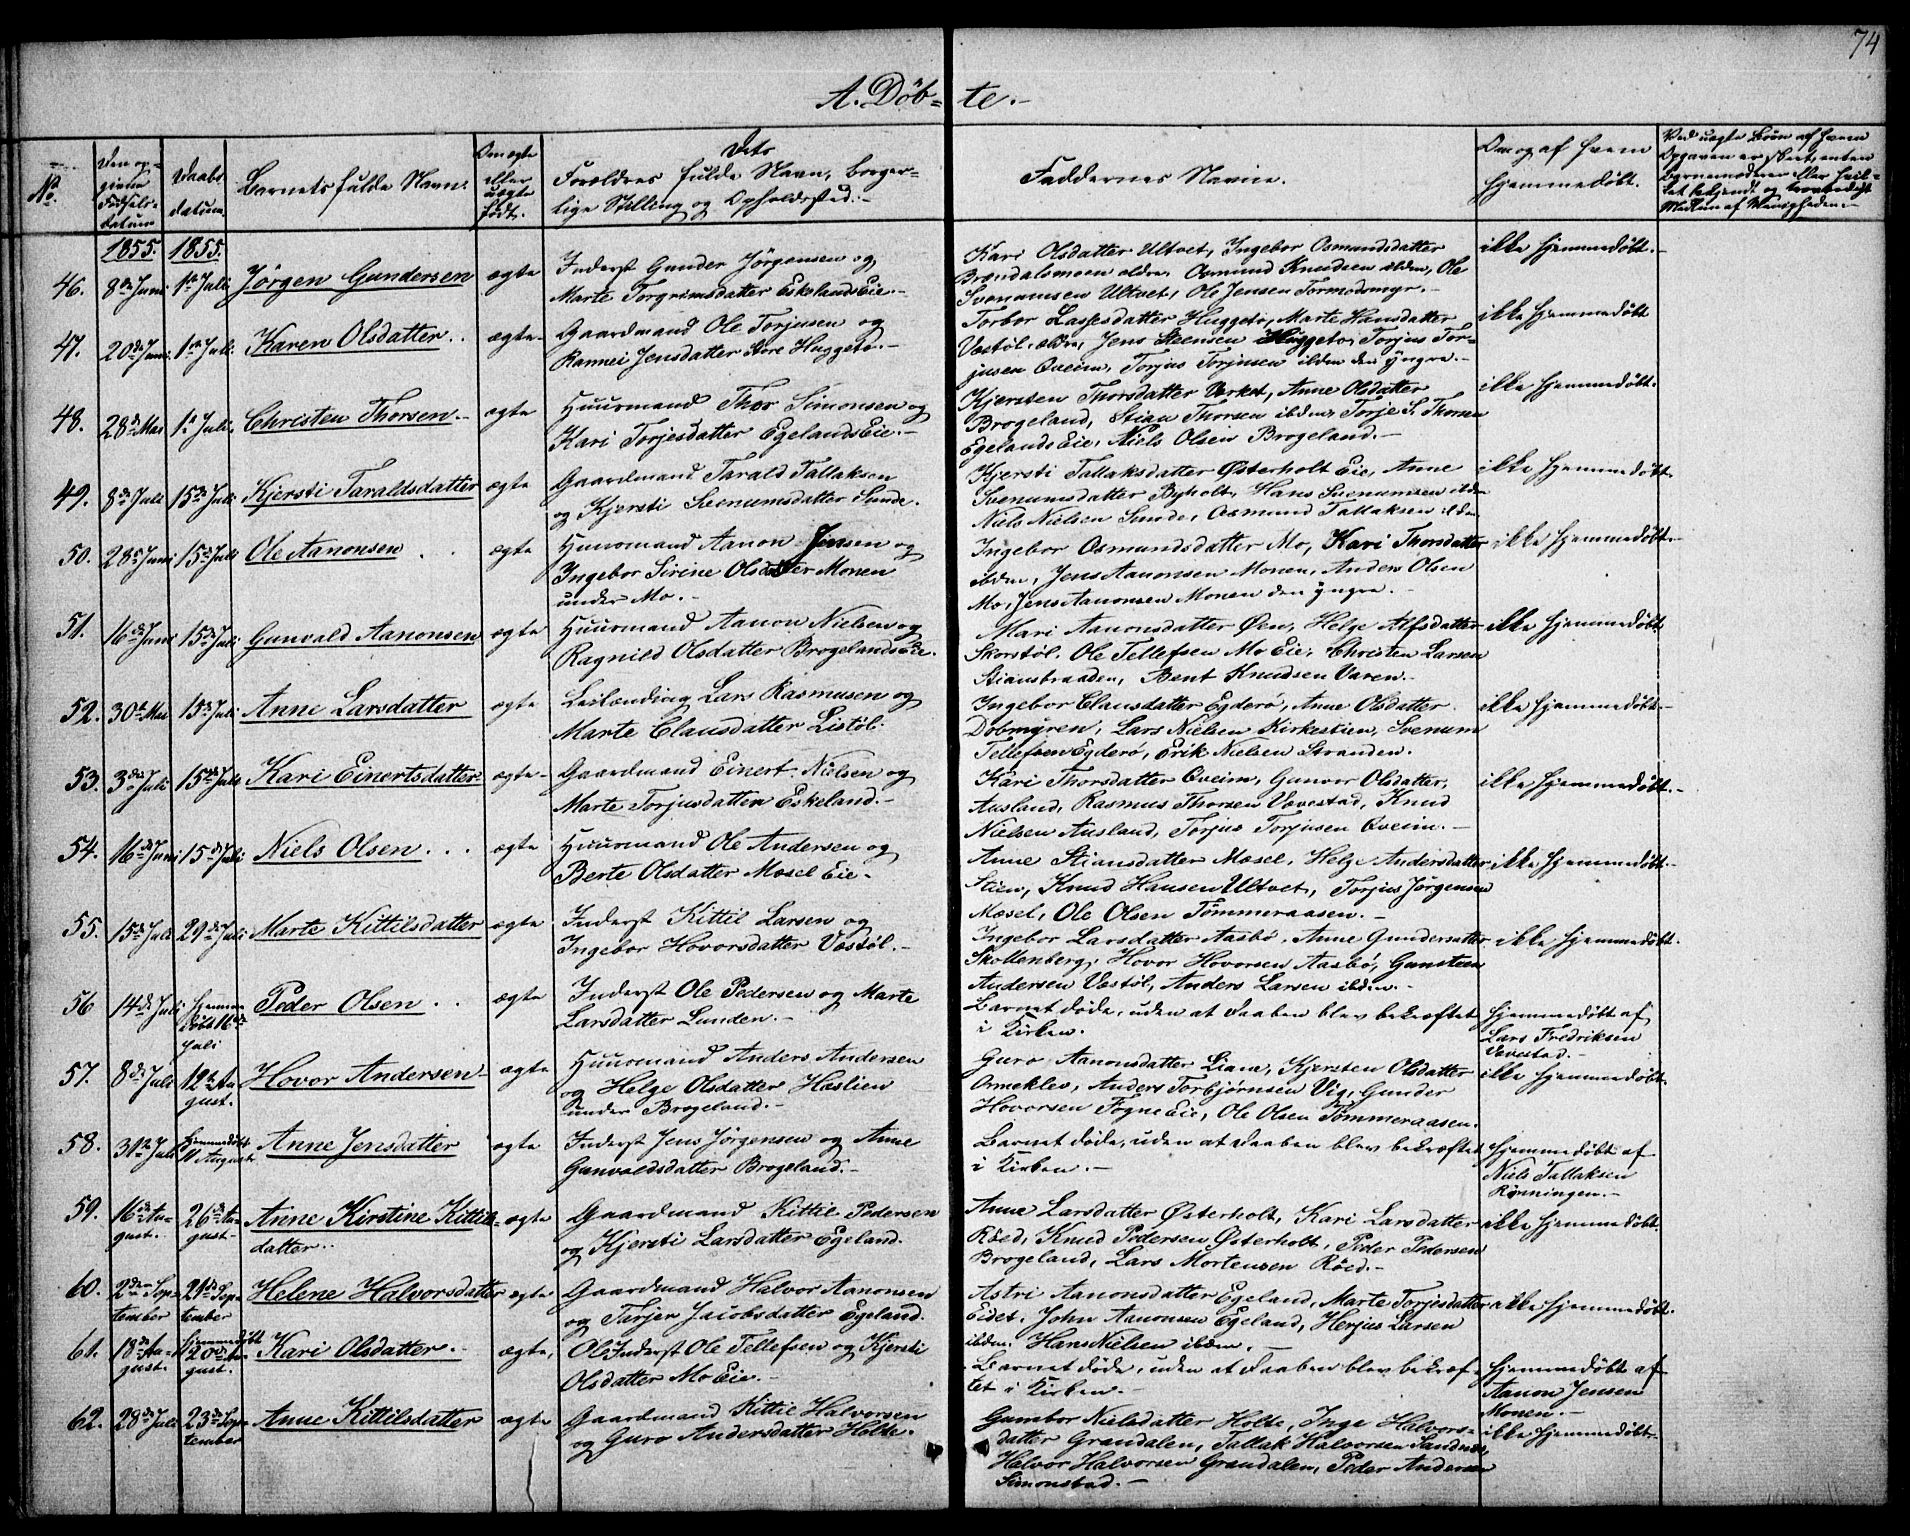 74
A. Døb- te.-
No.
Den op-
givne
Fødsels-
datum
Daabs
datum
Barnets fulde Navn.
Om ægte
eller
uægte
født.
Dets
Forældres fulde Navn, borger-
lige Stilling og Opholdssted.-
Faddernes Navne.
Om og af hvem
hjemmedøbt.
Ved uægte Børn af hvem
Opgaven er skeet, enten
Barnemoderen eller hvil-
ket bekjendt og troværdigt
Medlem af Menigheden.-
1855. 1855.
46. 8de Juni 1ste Juli Jørgen Gundersen ægte
Inderst Gunder Jørgensen og
Marte Torgrimsdatter Eskelands Eie.-
Kari Olsdatter Ultvet, Ingebor Osmundsdatter
Brændalsmoen ældre, Osmund Knudsen ibdm, Ole
Svenumsen Ultvet, Ole Jensen Tormodsmyr.-
ikke hjemmedøbt.-
47. 20de Juni 1ste Juli. Karen Olsdatter. ægte-
Gaardmand Ole Torjusen og
Rannei Jensdatter Store Huggeto.-
Torbor Lassesdatter Huggeto, Marte Hansdatter
Vestøl, ældre, Jens Steensen Huggeto, Torjus Tor-
jusen Oveim, Torjus Torjusen ibdm den yngre.-
ikke hjemmedøbt
48. 28de Mai 1ste Juli. Christen Thorsen.- ægte
Huusmand Thor Simonsen og
Kari Torjesdatter Egelands Eie.-
Kjersten Thorsdatter Verket, Anne Olsdatter
Brøgeland, Stian Thorsen ibdm, Torje S. Thorsen
Egelands Eie, Niels Olsen Brøgeland.-
ikke hjemmedøbt.
49. 8de Juli 15de Juli Kjersti Taraldsdatter ægte
Gaardmand Tarald Tallaksen
og Kjersti Svenumsdatter Sunde.
Kjersti Tallaksdatter Østerholt Eie, Anne
Svenumsdatter Byholt, Hans Svenumsen ibdm
Niels Nielsen Sunde, Osmund Tallaksen ibdm.
ikke hjemmedøbt.
50. 28de Juni 15de Juli Ole Aanonsen ægte
Huusmand Aanon Jensen og
Ingebor Sirine Olsdatter Monen
under Mo.-
Ingebor Osmundsdatter Mo, Kari Thorsdatter
ibdm, Jens Aanonsen Monen, Anders Olsen
Mo, Jens Aanonsen Monen den yngre.-
ikke hjemmedøbt.-
51. 16de Juni 15de Juli Gunvald Aanonsen ægte
Huusmand Aanon Nielsen og
Ragnild Olsdatter Brøgelands Eie.
Mari Aanonsdatter Øen, Helge Alfsdatter
Skorstøl, Ole Tellefsen Mo Eie, Christen Larsen
Stiansbraaden, Bent Knudsen Varen.-
ikke hjemmedøbt.
52. 30te Mai 15de Juli Anne Larsdatter ægte
Leilænding Lars Rasmusen og
Marte Clausdatter Listøl.
Ingebor Clausdatter Egderø, Anne Olsdatter
Dobmyren, Lars Nielsen Kirkestien, Svenum
Tellefsen Egderø, Erik Nielsen Stranden.
ikke hjemmedøbt.-
53. 3de Juli 15de Juli Kari Einertsdatter. ægte-
Gaardmand Einert Nielsen og
Marte Torjusdatter Eskeland.-
Kari Thorsdatter Oveim, Gunvor Olsdatter,
Ausland, Rasmus Thorsen Vovestad, Knud
Nielsen Ausland, Torjus Torjusen Oveim.-
ikke hjemmedøbt.-
54. 16de Juni 15de Juli Niels Olsen. ægte
Huusmand Ole Andersen og
Berte Olsdatter Mæsel Eie.-
Anne Stiansdatter Mæsel, Helge Andersdatter
Stien, Knud Hansen Ultvet, Torjus Jørgensen
Mæsel, Ole Olsen Tømmeraasen.-
ikke hjemmedøbt.-
55. 15de Juli 29de Juli Marte Kittilsdatter ægte
Inderst Kittil Larsen og
Ingebor Hovorsdatter Vestøl.-
Ingebor Larsdatter Aasbø, Anne Gundersdatter
Skollenberg, Hovor Hovorsen Aasbø, Gunsteen
Andersen Vestøl, Anders Larsen ibdm.-
ikke hjemmedøbt.
56 14de Juli hjemme
døbt 16de
Juli
Peder Olsen ægte
Inderst Ole Pedersen og Marte
Larsdatter Lunden.-
Barnet døde, uden at Daaben blev bekræftet
i Kirken.
hjemmedøbt af
Lars Fredriksen
Vovestad.-
57. 8de Juli 12te Au-
gust.
Hovor Andersen- ægte
Huusmand Anders Andersen
og Helge Olsdatter Heslien
under Brøgeland.-
Guro Aanonsdatter Liane, Kjersten Olsdatter
Ornekleo, Anders Torbjørnsen Vig, Gunder
Hovorsen Fogne Eie, Ole Olsen Tømmeraasen.
ikke hjemmedøbt.
58. 31te Juli Hjemmedøbt
11 August
Anne Jensdatter ægte
Inderst Jens Jørgensen og Anne
Gunvaldsdatter Brøgeland.-
Barnet døde, uden at Daaben blev bekræftet
i Kirken.-
hjemmedøbt af
Niels Tallaksen
Rønningen.-
59. 16de Au-
gust.
26de Au-
gust-
Anne Kirstine Kittils-
datter.
ægte
Gaardmand Kittil Pedersen
og Kjersti Larsdatter Egeland.
Anne Larsdatter Østerholt, Kari Larsdatter
Røed, Knud Pedersen Østerholt, Peder Pedersen
Brøgeland, Lars Mortensen Røed.-
ikke hjemmedøbt
60. 2den Sep-
tember
29de Sep-
tember
Helene Halvorsdatter ægte
Gaardmand Halvor Aanonsen
og Tarjer Jacobsdatter Egeland.
Astri Aanonsdatter Egeland, Marte Torjesdatter
Eidet, John Aanonsen Egeland, Herjus Larsen
ibdm. Hans Nielsen ibdm.-
ikke hjemmedøbt.
61. 18de Au-
gust.
hjemmedøbt
20de Au-
gust.
Kari Olsdatter.- ægte,
Inderst Ole Tellefsen og Kjersti
Olsdatter Mo Eie.-
Barnet døde, uden at Daaben blev bekræf-
tet i Kirken.-
hjemmedøbt af
Aanon Jensen
Monen.-
62. 28de Juli 23de Sep-
tember
Anne Kittilsdatter ægte
Gaardmand Kittil Halvorsen
og Guro Andersdatter Holte.
Gumbor Nielsdatter Holte, Inge Halvors-
datter Grandalen, Tallak Halvorsen Sandnes,
Halvor Halvorsen Grandalen, Peder Andersen
Simonstad.-
ikke hjemmedøbt.